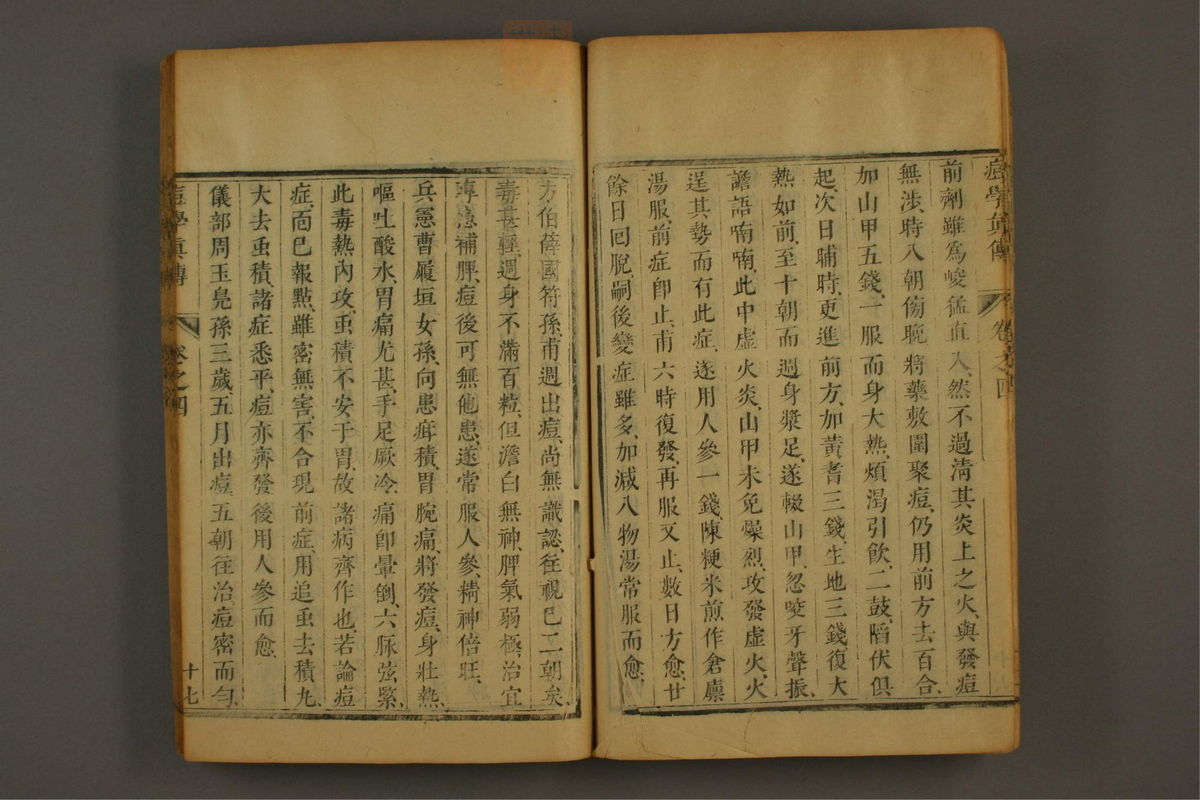 痘學真傳 卷之四
前劑雖爲峻猛直入、然不過清其炎上之火、與發痘
無涉、時八朝傍晚、將藥敷圍聚痘、仍用前方去百合、
加山甲五錢、一服而身大熱、煩渴引飲、二鼓、陷伏俱
起、次日晡時、更進前方、加黃耆三錢、生地三錢、復大
熱如前、至十朝而週身漿足、遂輟山甲、忽咬牙聲振、
譫語喃喃、此中虛火炎、山甲未免燥烈、攻發虛火、火
逞其勢而有此症、遂用人參一錢、陳粳米煎作倉廩
湯服、前症卽止、甫六時復發、再服又止、數日方愈、廿
餘日回脫、嗣後變症雖多、加減八物湯常服而愈、
方伯薛國符孫、甫週出痘、尚無識認、往視已二朝矣、
毒甚輕、週身不滿百粒、但澹白無神、脾氣弱極、治宜
專意補脾、痘後可無他患、遂常服人參、精神倍旺、
兵憲曹履垣女孫、向患疳積、胃脘痛、將發痘、身壯熱、
嘔吐酸水、胃痛尤甚、手足厥冷、痛卽暈倒、六脈弦緊、
此毒熱內攻、虫積不安于胃、故諸病齊作也、若論痘
症、面已報點、雖密無害、不合現前症、用追虫去積丸、
大去虫積、諸症悉平、痘亦齊發、後用人參而愈、
儀部周玉鳧孫三歲、五月出痘、五朝往治、痘密而勻、
痘學真傳 卷之四 十七